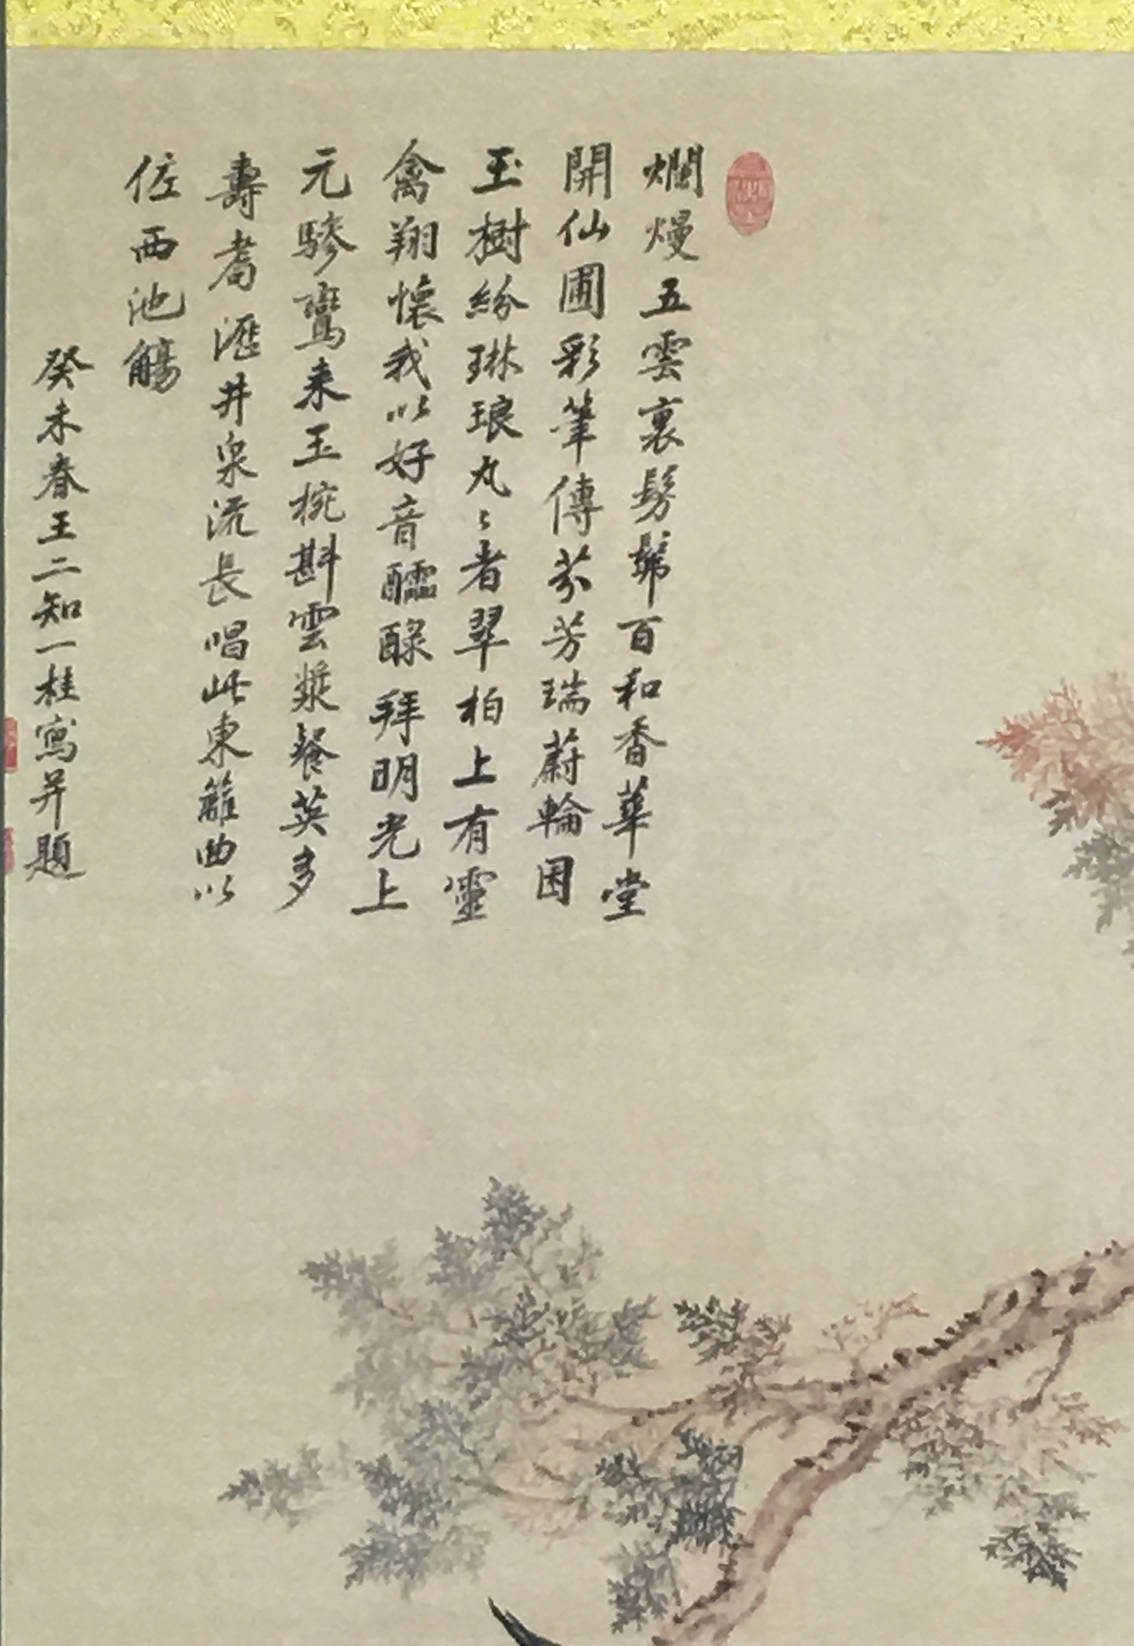 爛熳五雲裏髣髴百和香華堂
開仙圃彩筆傳芬芳瑞蔚輪囷
玉樹紛琳琅丸〻者翠柏上有靈
禽翔懷我以好音醽醁拜明光上
元驂鸞来玉椀斟雲漿餐英多
壽耇澠井泉流長唱此東籬曲以
佐西池觴
癸未春王二知一桂寫并題